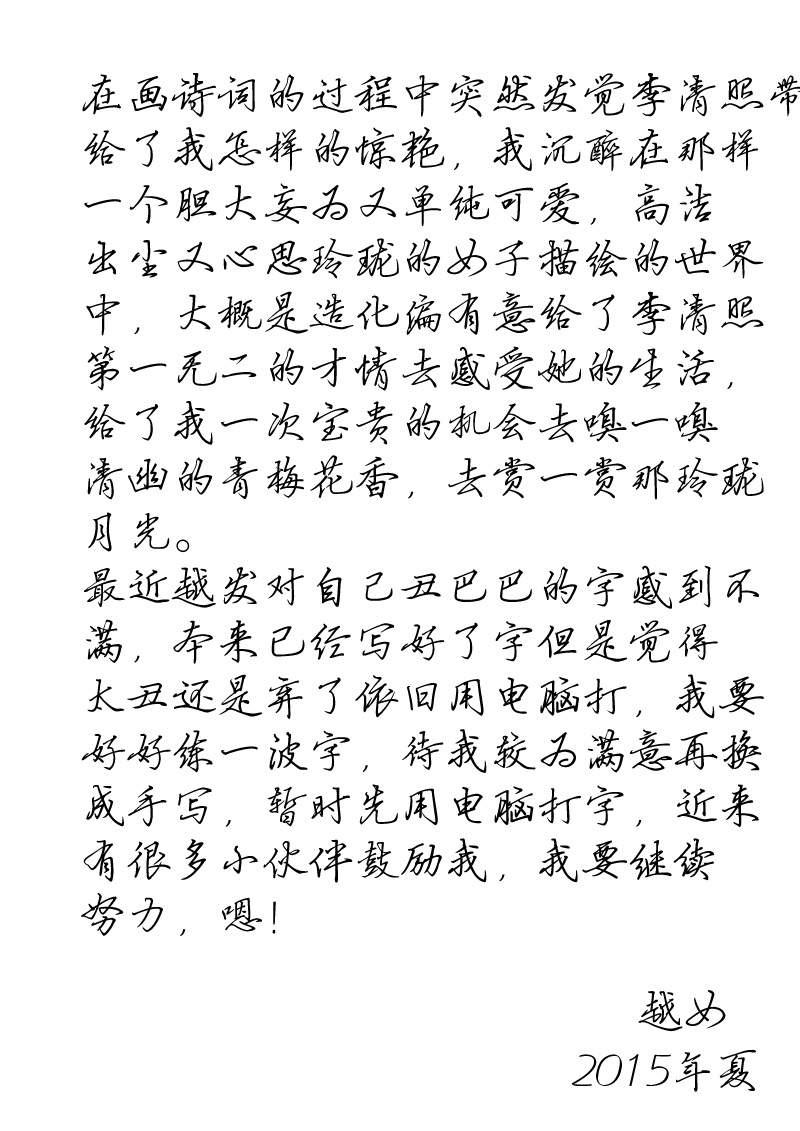 在画诗词的过程中突然发觉李清照带
给了我怎样的惊艳，我沉醉在那样
一个胆大妄为又单纯可爱，高洁
出尘又心思玲珑的女子描绘的世界
中，大概是造化偏有意给了李清照
第一无二的才情去感受她的生活，
给了我一次宝贵的机会去嗅一嗅
清幽的青梅花香，去赏一赏那玲珑
月光。
最近越发对自己丑巴巴的字感到不
满，本来已经写好了字但是觉得
太丑还是弃了依旧用电脑打，我要
好好练一波字，待我较为满意再换
成手写，暂时先用电脑打字，近来
有很多小伙伴鼓励我，我要继续
努力，嗯！
越女
2015年夏